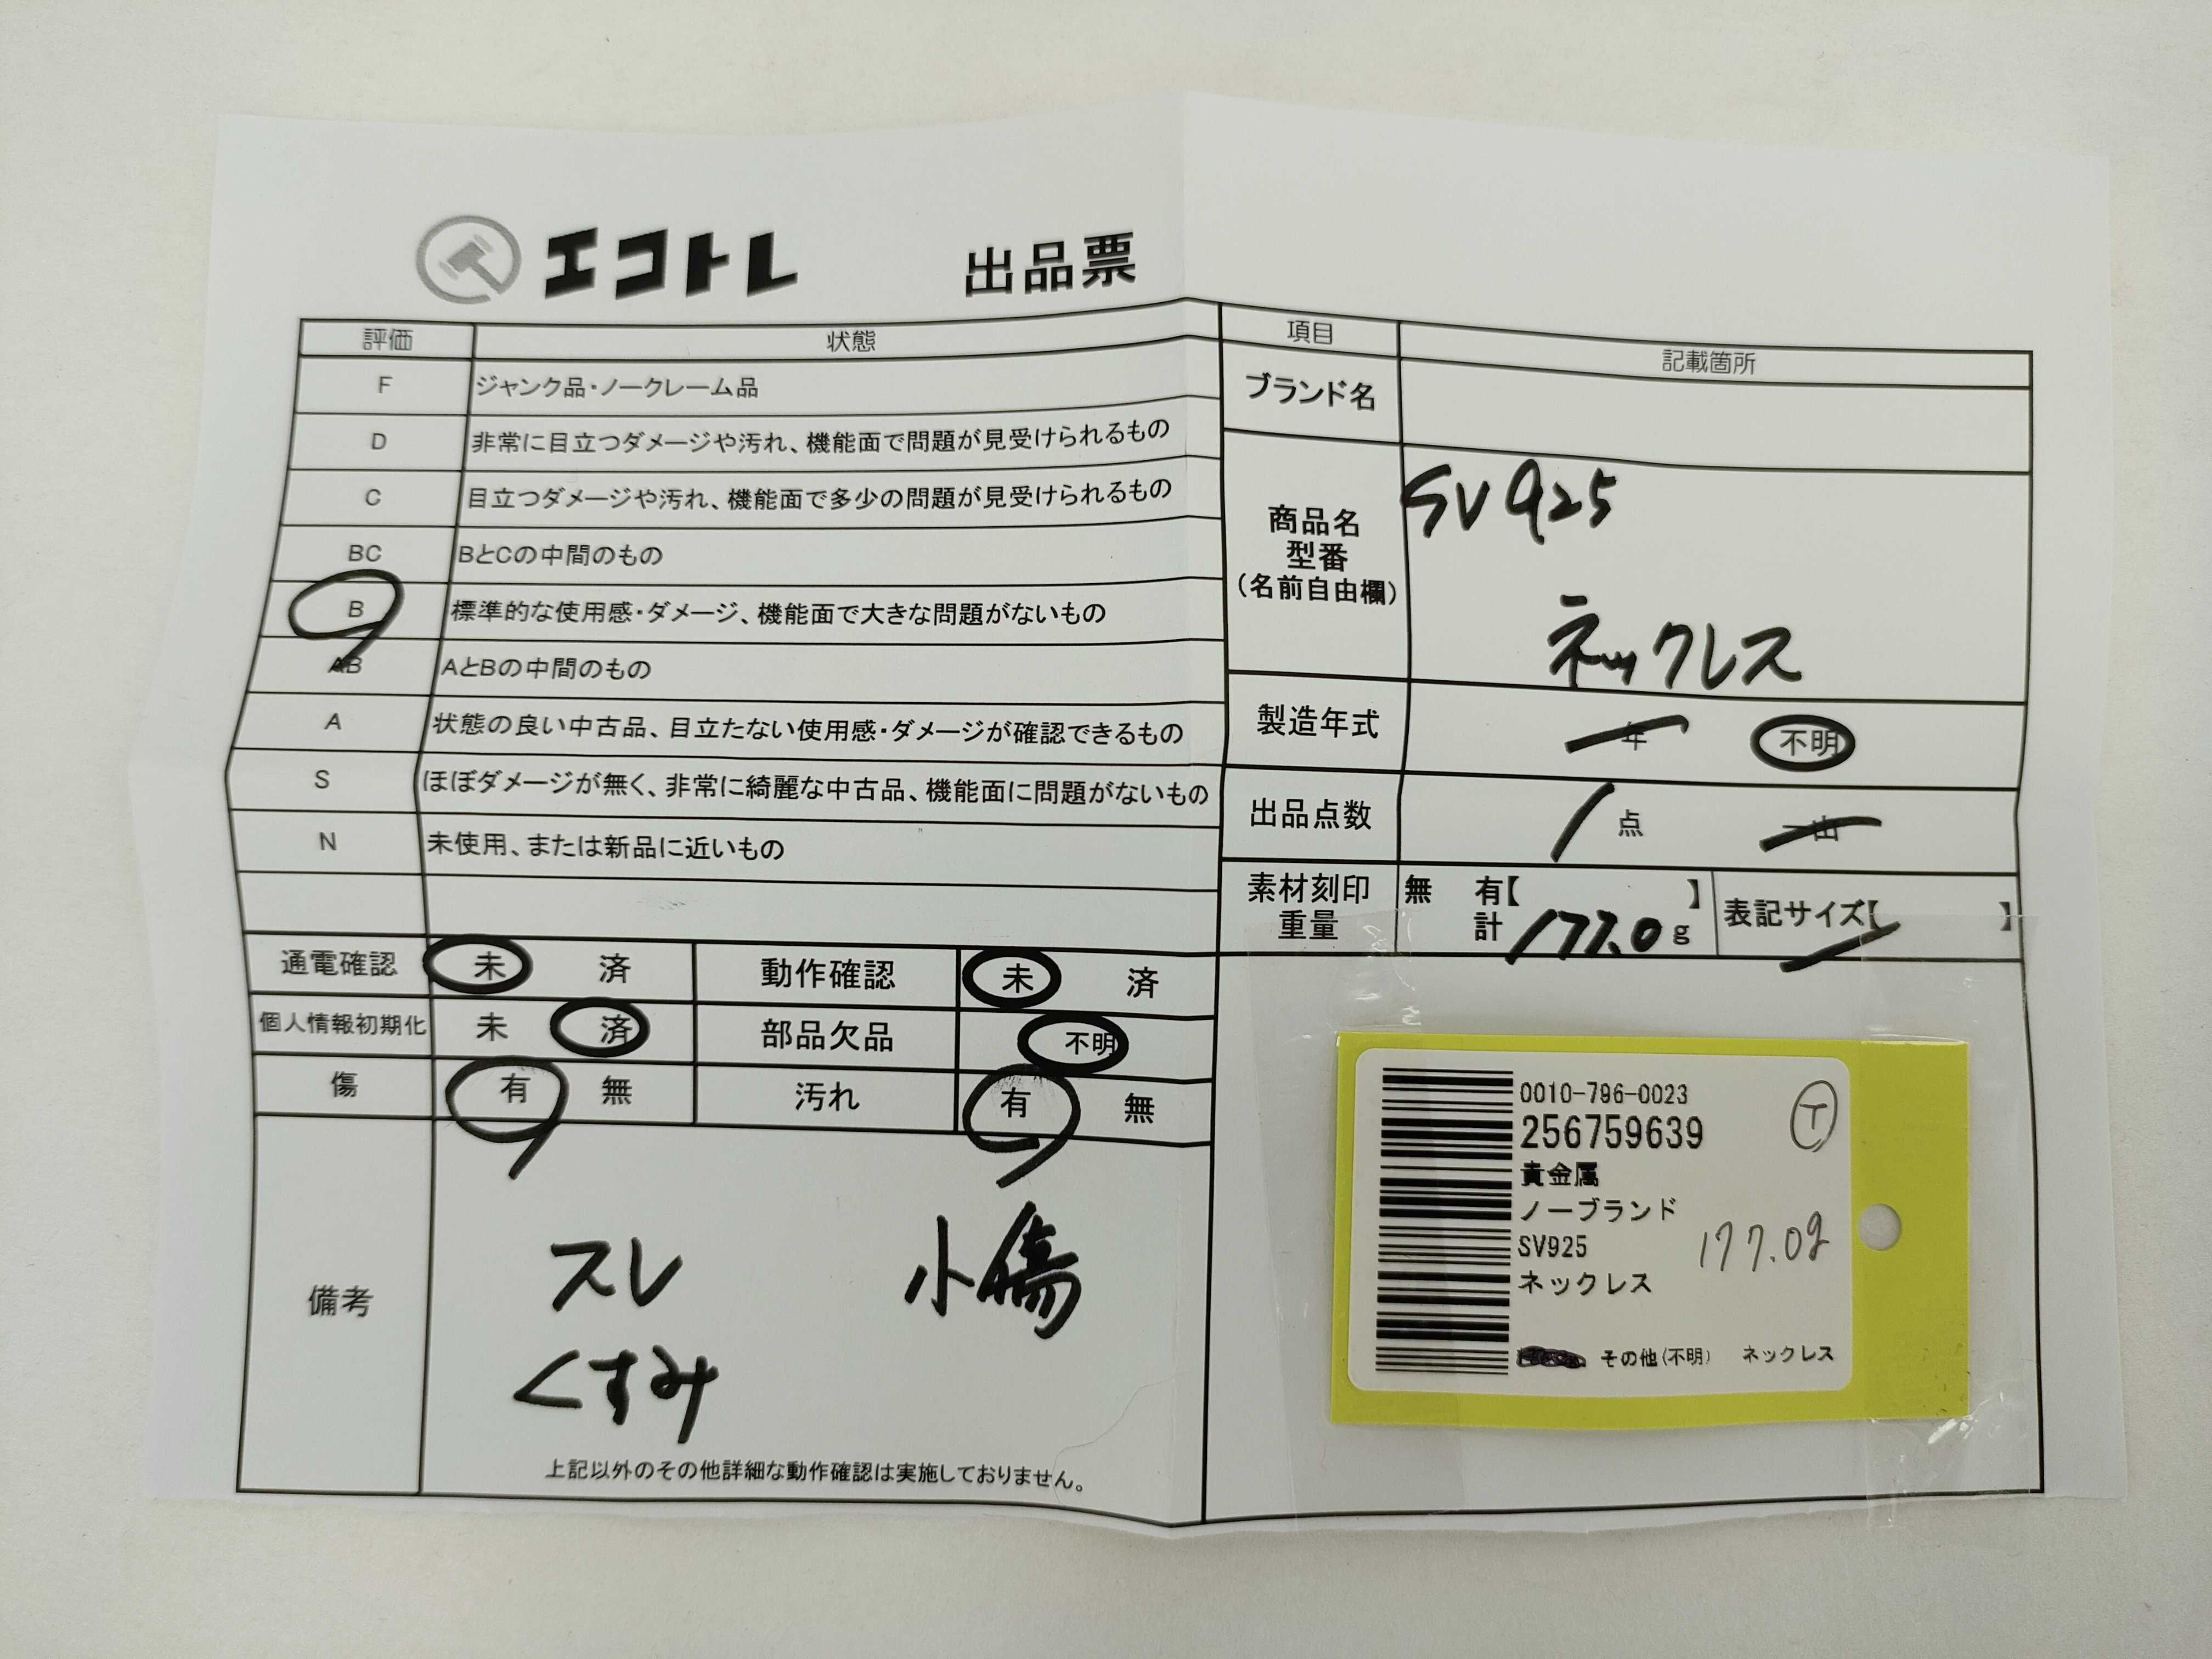 エコトレ 出品票
評価 状態
F ジャンク品・ノークレーム品
D 非常に目立つダメージや汚れ、機能面で問題が見受けられるもの
C 目立つダメージや汚れ、機能面で多少の問題が見受けられるもの
BC BとCの中間のもの
B 標準的な使用感・ダメージ、機能面で大きな問題がないもの
AB AとBの中間のもの
A 状態の良い中古品、目立たない使用感・ダメージが確認できるもの
S ほぼダメージが無く、非常に綺麗な中古品、機能面に問題がないもの
N 未使用、または新品に近いもの
通電確認 未 済 動作確認 未 済
個人情報初期化 未 済 部品欠品 不明
傷 有 無 汚れ 有 無
備考
スレ 小傷
くすみ
上記以外のその他詳細な動作確認は実施しておりません。
項目 記載箇所
ブランド名
商品名
型番
(名前自由欄)
SV925
ネックレス
製造年式 年 不明
出品点数 1 点 一山
素材刻印 無 有【 】
重量 計 177.0 g
表記サイズ【 】
0010-796-0023
256759639
T
貴金属
ノーブランド
SV925
177.0g
ネックレス
その他(不明) ネックレス